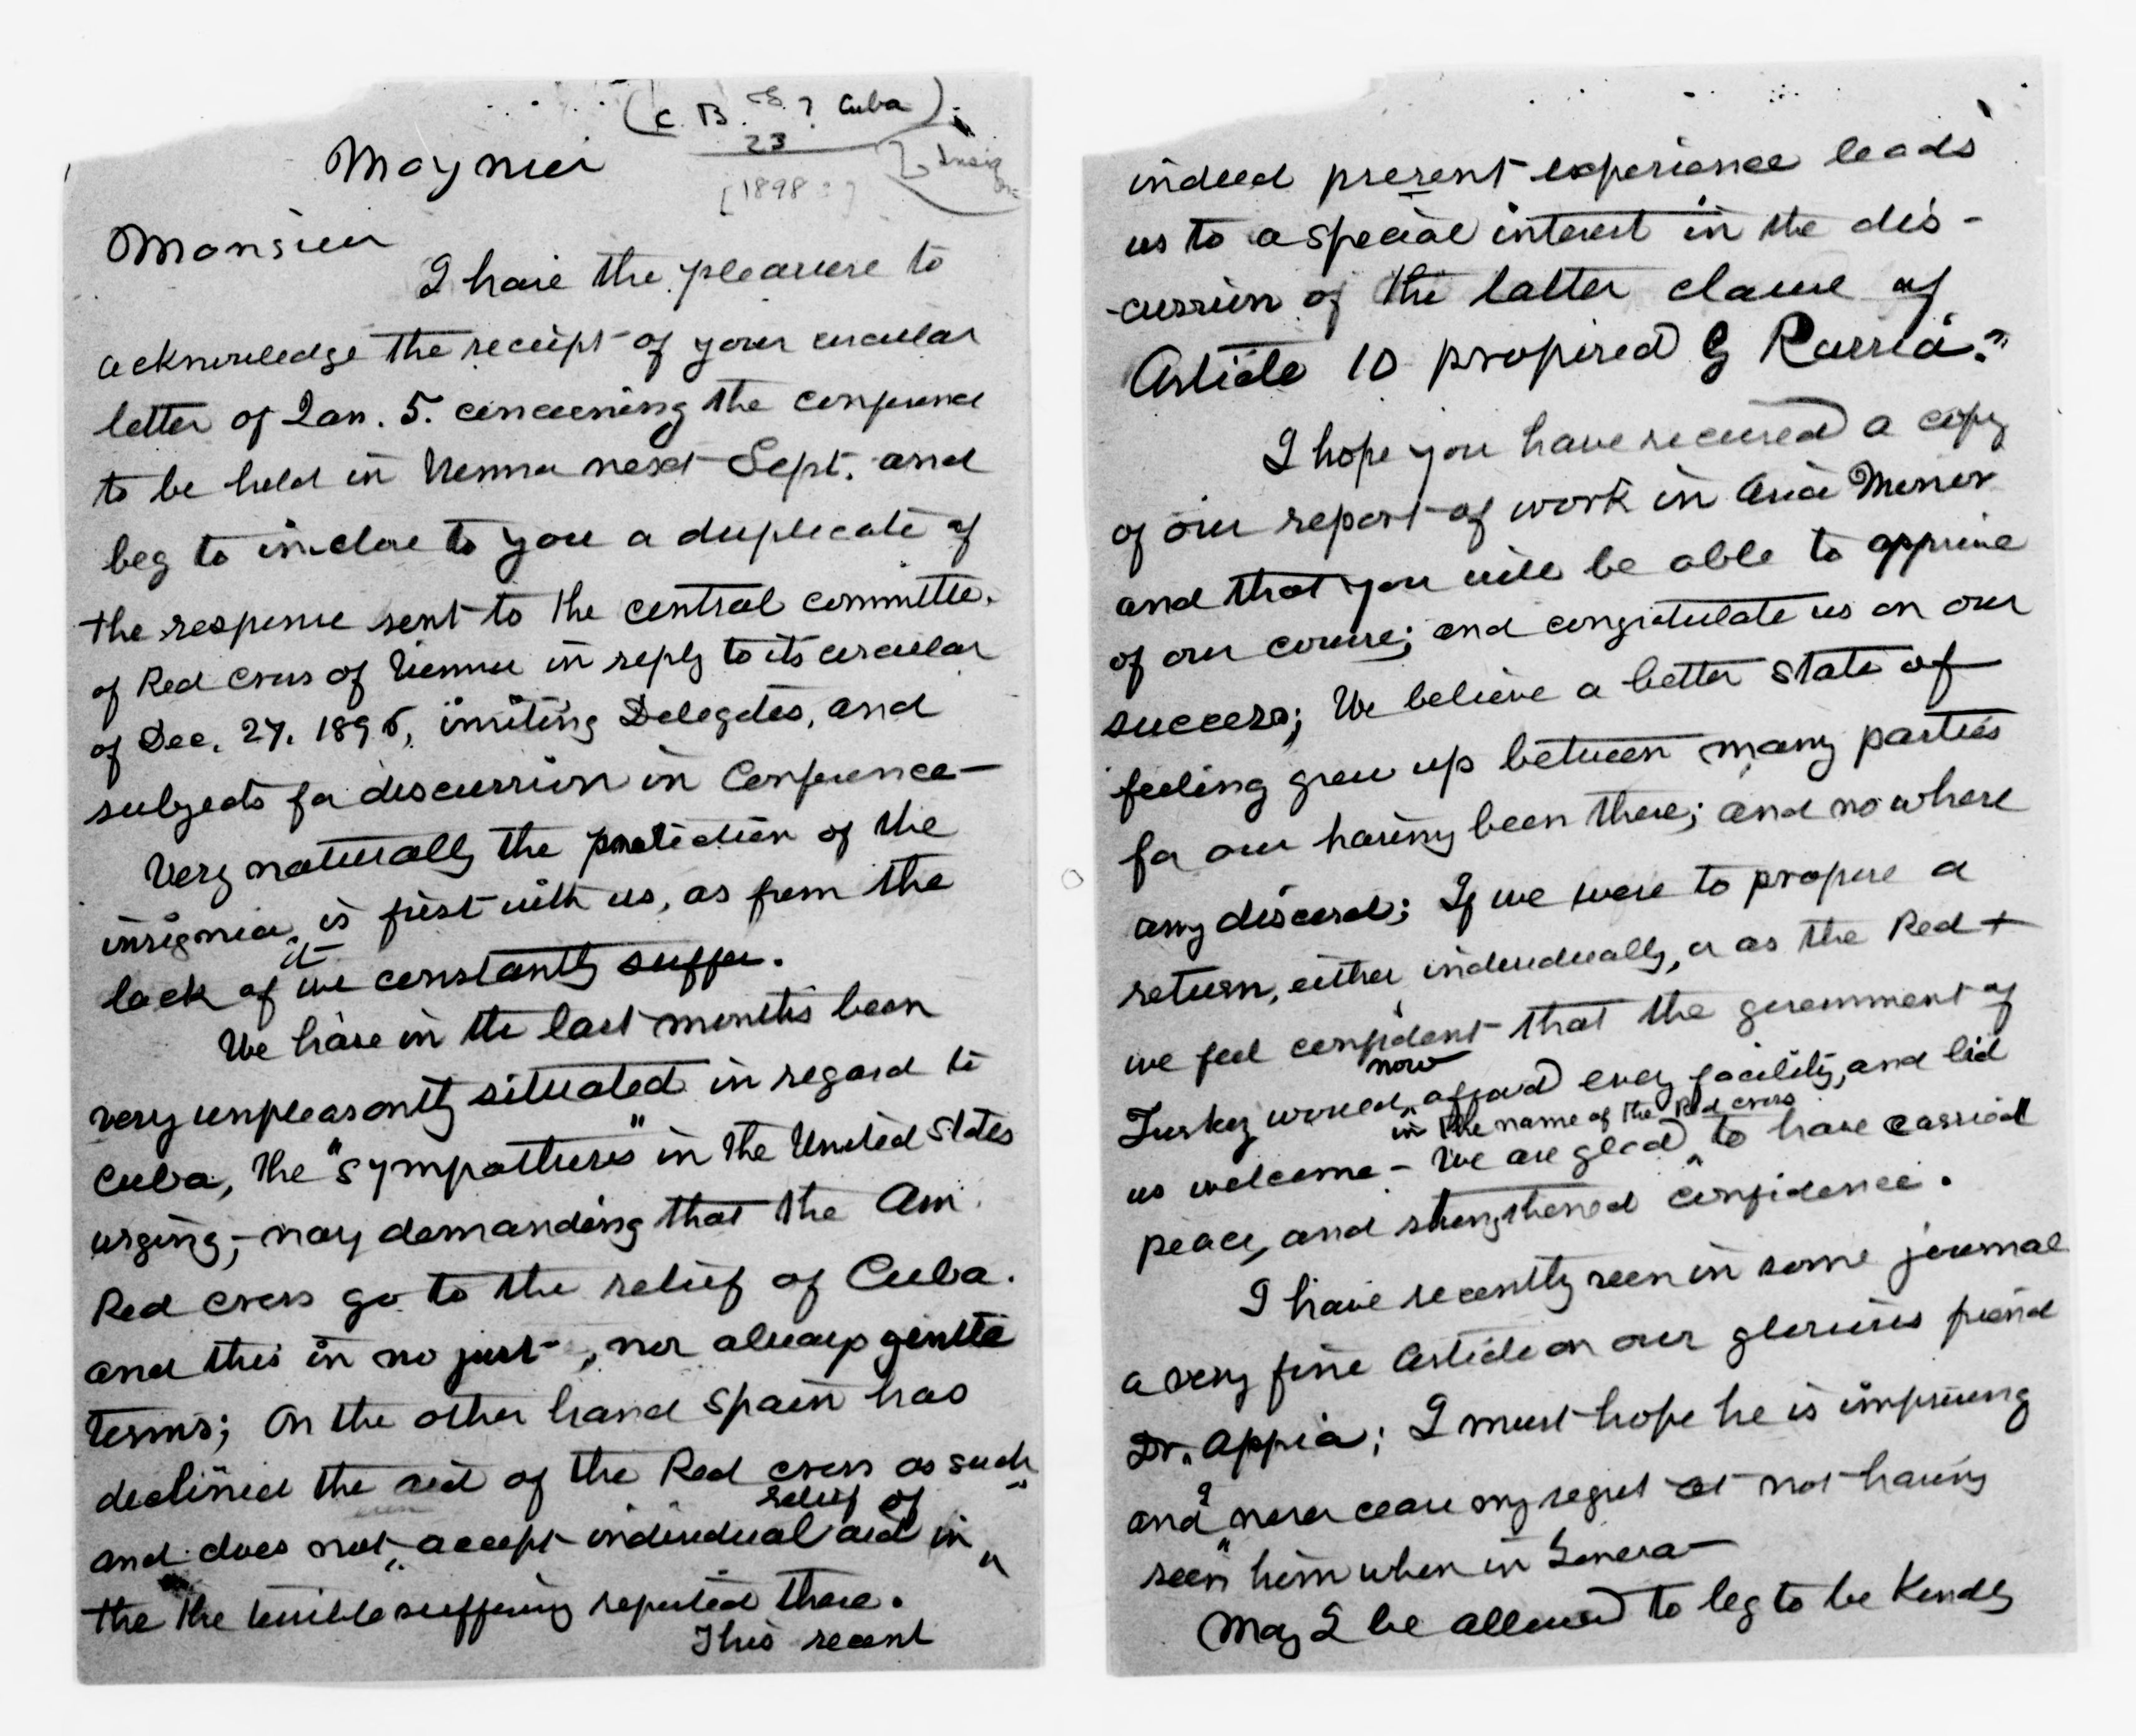 (C. B. ? Cuba)
23
[1898 ?]
Insig
Moynier
Monsieur
I have the pleasure to
acknowledge the receipt of your circular
letter of Jan. 5. concerning the conference
to be held in Vienna next Sept. and
beg to inclose to you a duplicate of
the response sent to the central committee.
of Red Cross of Vienna in reply to its circular
of Dec. 27. 1896, inviting Delegates, and
subjects for discussion in Conference —
Very naturally the protection of the
insignia is first with us, as from the
lack of it we constantly suffer.
We have in the last months been
very unpleasantly situated in regard to
Cuba, the "sympathisers" in the United States
urging, — nay demanding that the Am.
Red Cross go to the relief of Cuba.
and this in no just , nor always gentle
terms; On the other hand Spain has
declined the aid of the Red Cross as such
and does not accept individual aid in relief of
the the terrible suffering reported there.
This recent
indeed present experience leads
us to a special interest in the dis-
-cussion of the latter clause of
Article 10 proposed by Russia."
I hope you have received a copy
of our report of work in Asia Minor
and that you will be able to approve
of our course; and congratulate us on our
success; We believe a better state of
feeling grew up between many parties
for our having been there; and nowhere
any discord; If we were to propose a
return, either individually, or as the Red +
we feel confident that the government of
Turkey would now afford every facility, and bid
us welcome — We are glad in the name of the Red Cross to have carried
peace, and strengthened confidence.
I have recently seen in some journal
a very fine Article on our glorious friend
Dr. Appia; I must hope he is improving
and I never cease my regret at not having
seen him when in Geneva —
May I be allowed to beg to be kindly